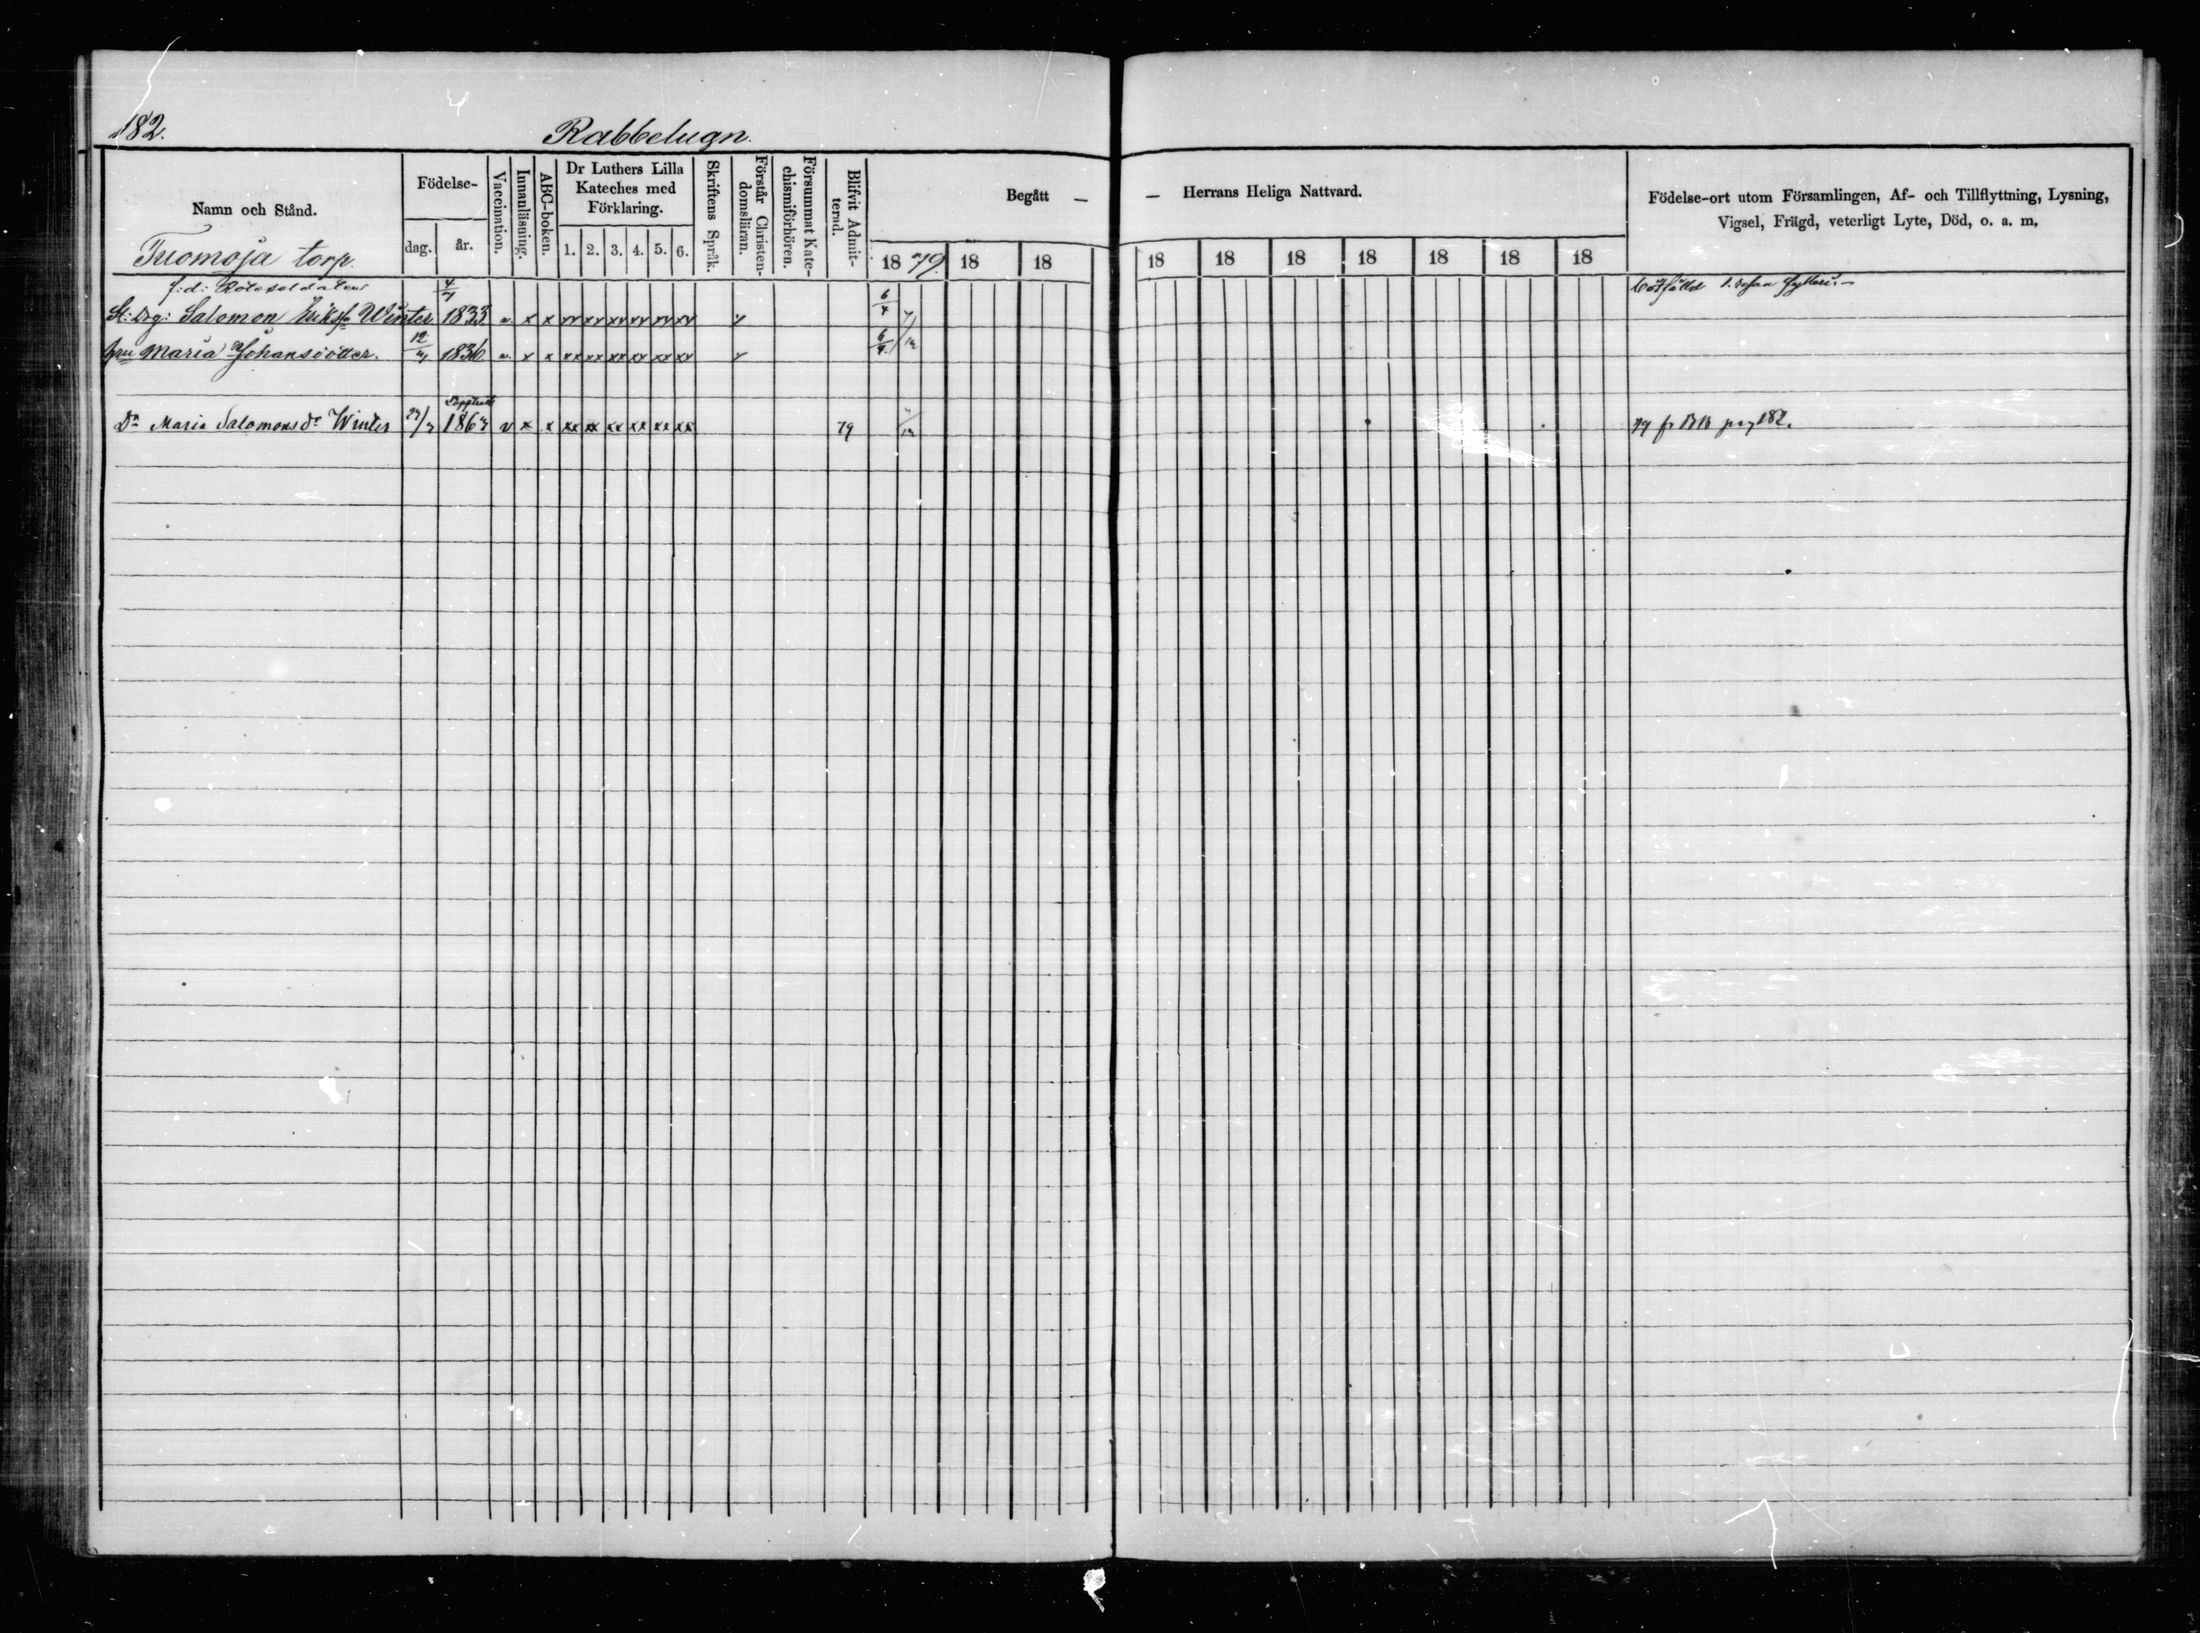 182.
Rabbelugn.
Namn och Stånd.
Födelse-
dag.
år.
Vaccination.
Innanläsning.
ABC-boken.
Dr Luthers Lilla
Kateches med
Förklaring.
1. 2. 3. 4. 5. 6.
Skriftens Språk.
Förstår Christen-
domsläran.
Försummat Kate-
chismiförhören.
Blifvit Admit-
terad.
Begått —
— Herrans Heliga Nattvard.
Födelse-ort utom Församlingen, Af- och Tillflyttning, Lysning,
Vigsel, Frägd, veterligt Lyte, Död, o. a. m.
1879. 18 18 18 18 18 18 18 18 18
Tuomoja torp.
f: d: Rotesoldaten
Salomon Erikss Winter 4/7 1833 v. x x xx xx xx xx xx xx 6/4
Maria Johansdotter. 1836 v. x x xx xx xx xx xx xx 6/4
Dr Maria Salomonsdr Winter v x x xx xx xx xx xx xx 79
79 fr BB pag 182.